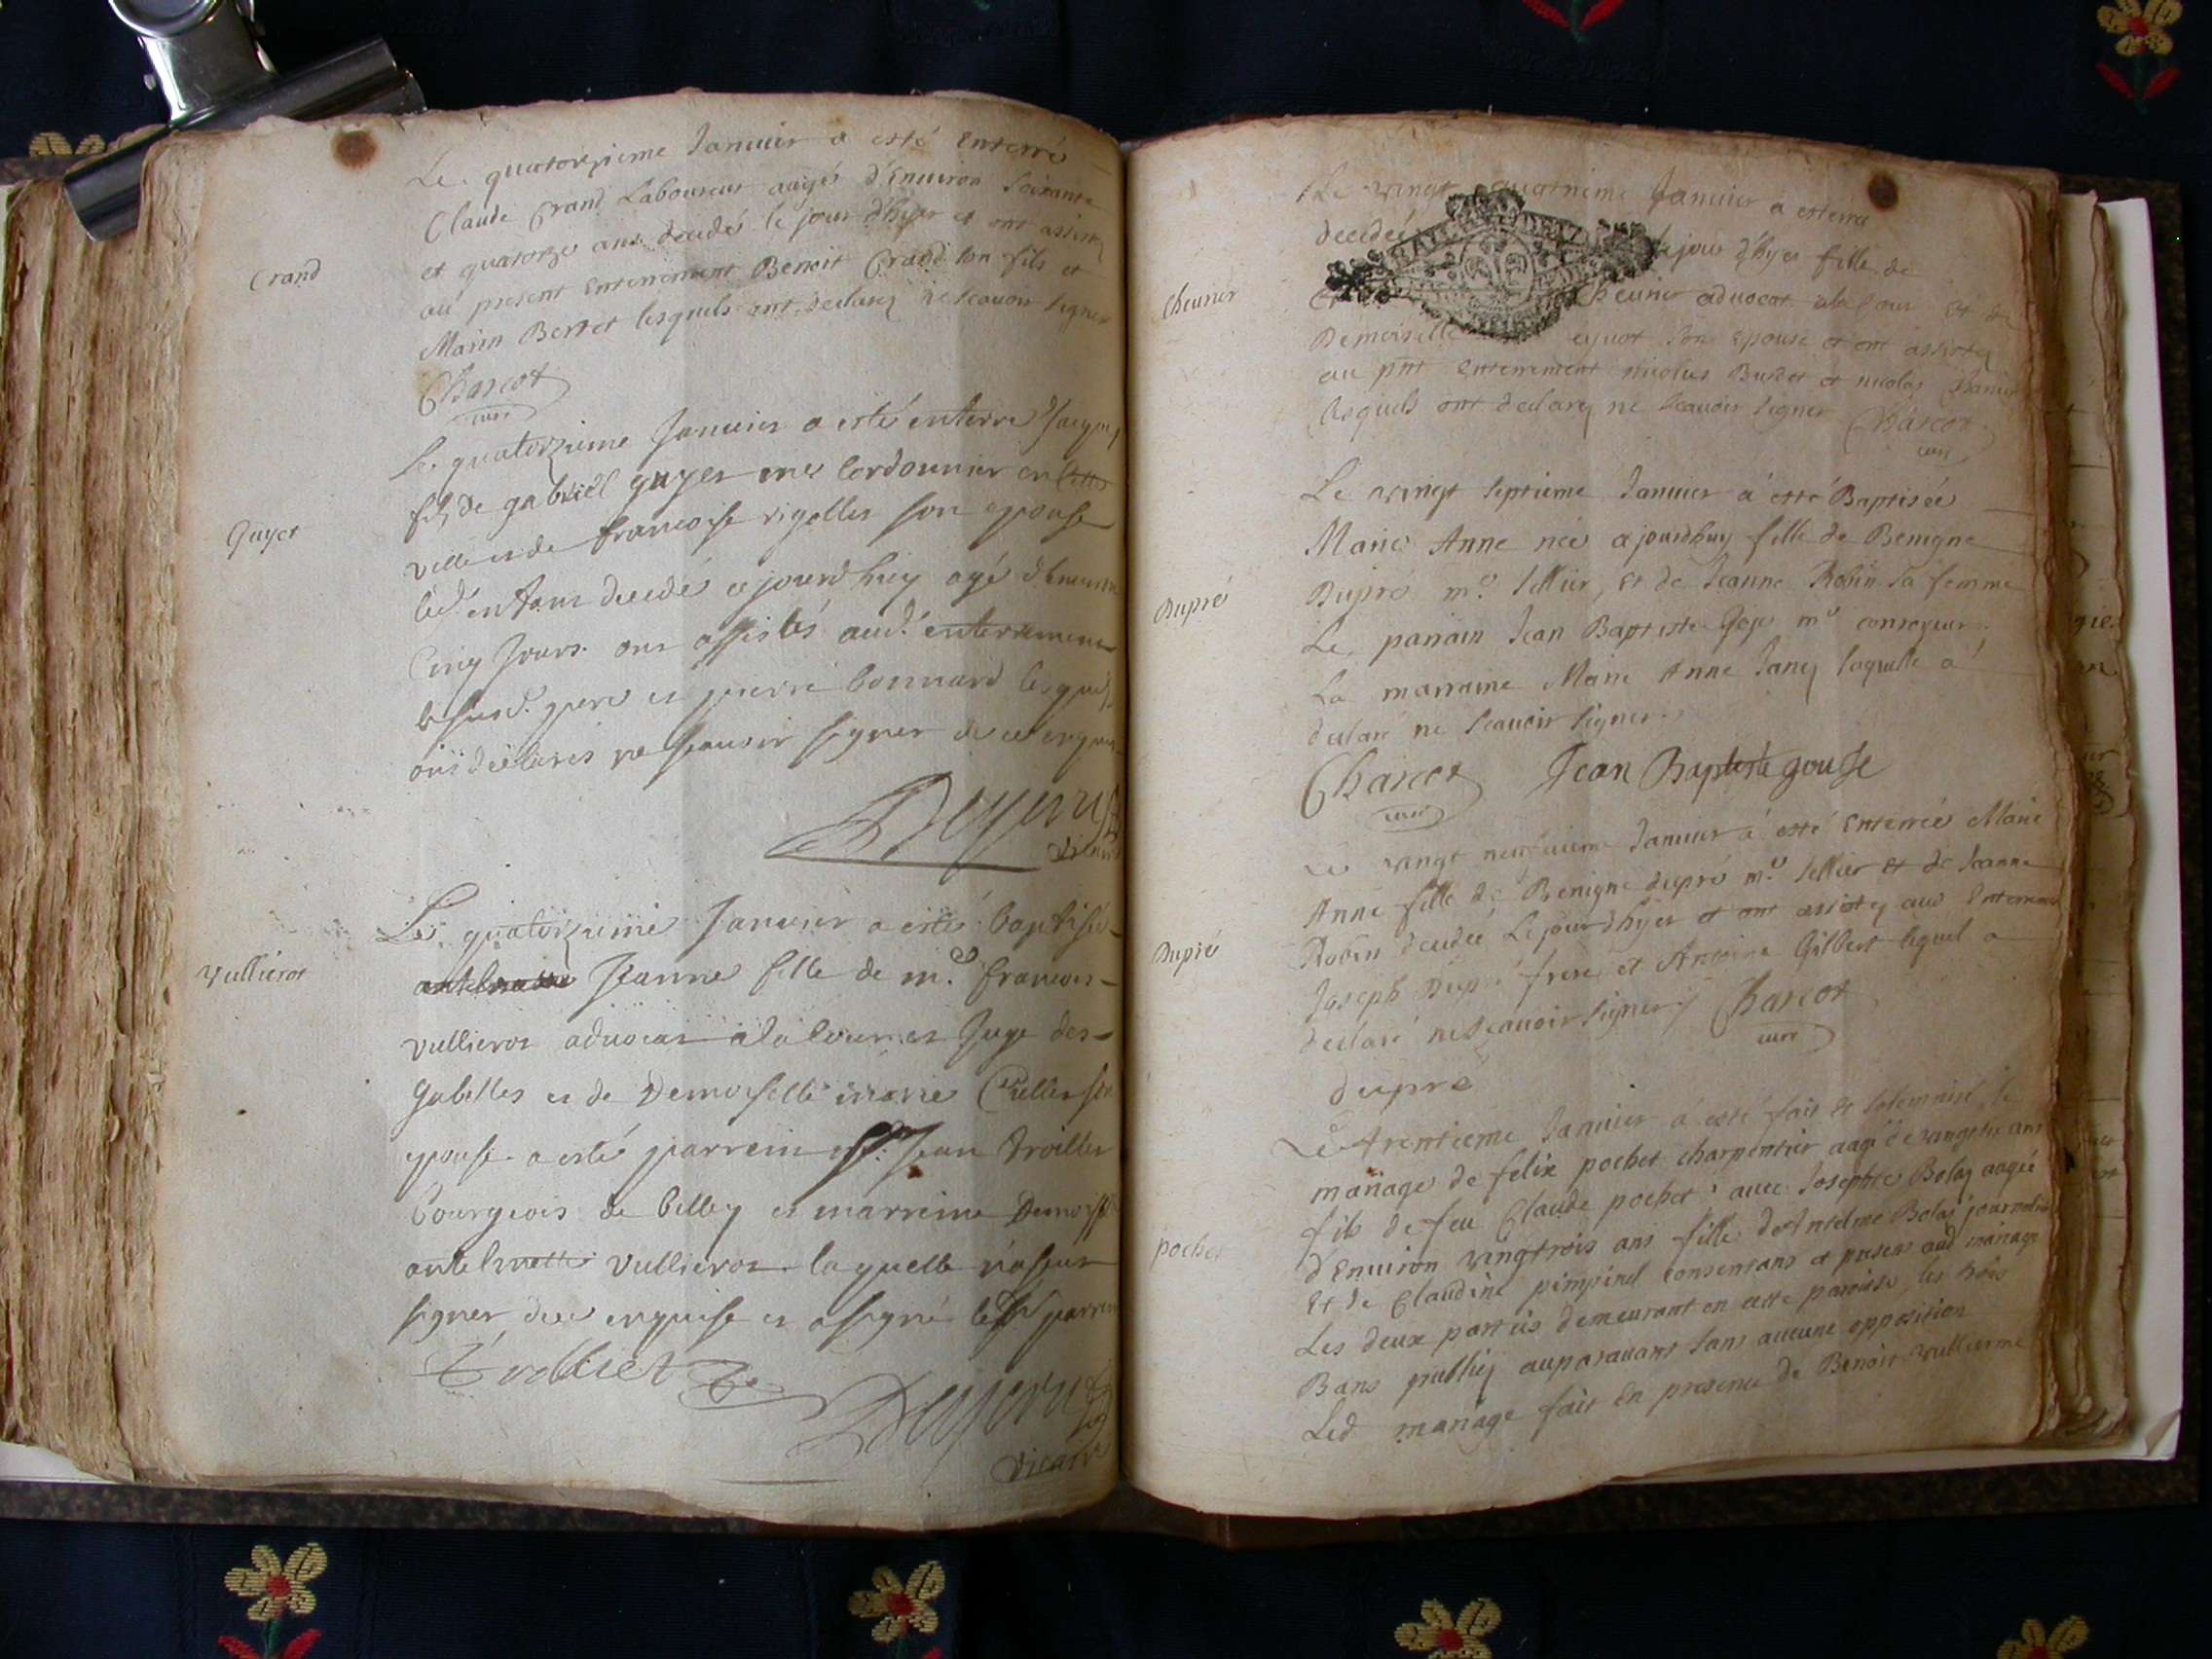 Le quatorzieme Januier a esté Enterré
Claude Grand Laboureur aagé d'Enuiron soixante
et quatorze ans decedé le jour d'hyer et ont assisté
au present Enterrement Benoit Grand son fils et
Marin Bertet lesquels ont declaré ne scauoir signer
Grand
Charcot
curé
Le quatorzieme Januier a esté enterré Jacques
fils de gabriël guyet mre Cordonnier en cette
ville et de francoise rigollet son epouse
led. enfant decedé ce jourdhuy agé d'enuiron
Cinq Jours. ont assistés aud. enterrement
le susd. pere et pierre bonnard lesquels
ont déclarés ne scauoir signer de ce enquis
Guyet
vicaire
Le quatorzieme Januier a esté baptisée
Jeanne fille de me. francois
vullierot aduocat a la Cour et Juge des
Gabelles et de Demoiselle marie Cullet son
epouse a esté parrein sr. Jean trolliet
bourgeois de belley et marreine Demoiselle
antelmette vullierot laquelle n'a sçeu
signer de ce enquise et a signé led. sr parrein
Vullierot
Trolliet
vicaire
Le vingt quatrieme Januier a esterré
decedé le jour d'hyer fille de
Cheurier aduocat a la Cour et de
Demoiselle son Epouse et ont assisté
au pnt Enterrement nicolas Burdet et nicolas
lesquels ont declaré ne scauoir signer Charcot
curé
Cheurier
Le vingt septieme Januier a esté Baptisée
Marie Anne née ajourdhuy fille de Benigne
Dupré me. sellier, et de Jeanne Robin sa femme
Le parrain Jean Baptiste
La marraine Marie Anne Jany laquelle a
declaré ne scauoir signer.
Dupré
Charcot Jean Baptiste gouse
curé
Le vingt neufuieme Januier a esté Enterrée Marie
Anne fille de Benigne dupré me. sellier et de Jeanne
Robin decedée Le jourdhyer et ont assisté aud Enterrement
Joseph Dupré frere et Antoine Gilbert lequel a
declaré ne scauoir signer Charcot
curé
Dupré
dupré
Le trentieme Januier a esté fait et solemnisé le
mariage de felix pochet charpentier aagé de vingt six ans
fils de feu Claude pochet auec Josephte Bolaz aagée
d'Enuiron vingt trois ans fille d'Antelme Bolaz journalier
Et de Claudine pimpinel consentans et presens aud mariage
Les deux parties demeurant en cette paroisse, les trois
Bans publiez auparauant sans aucune opposition
Led mariage fait En presence de Benoit vullierme
pochet